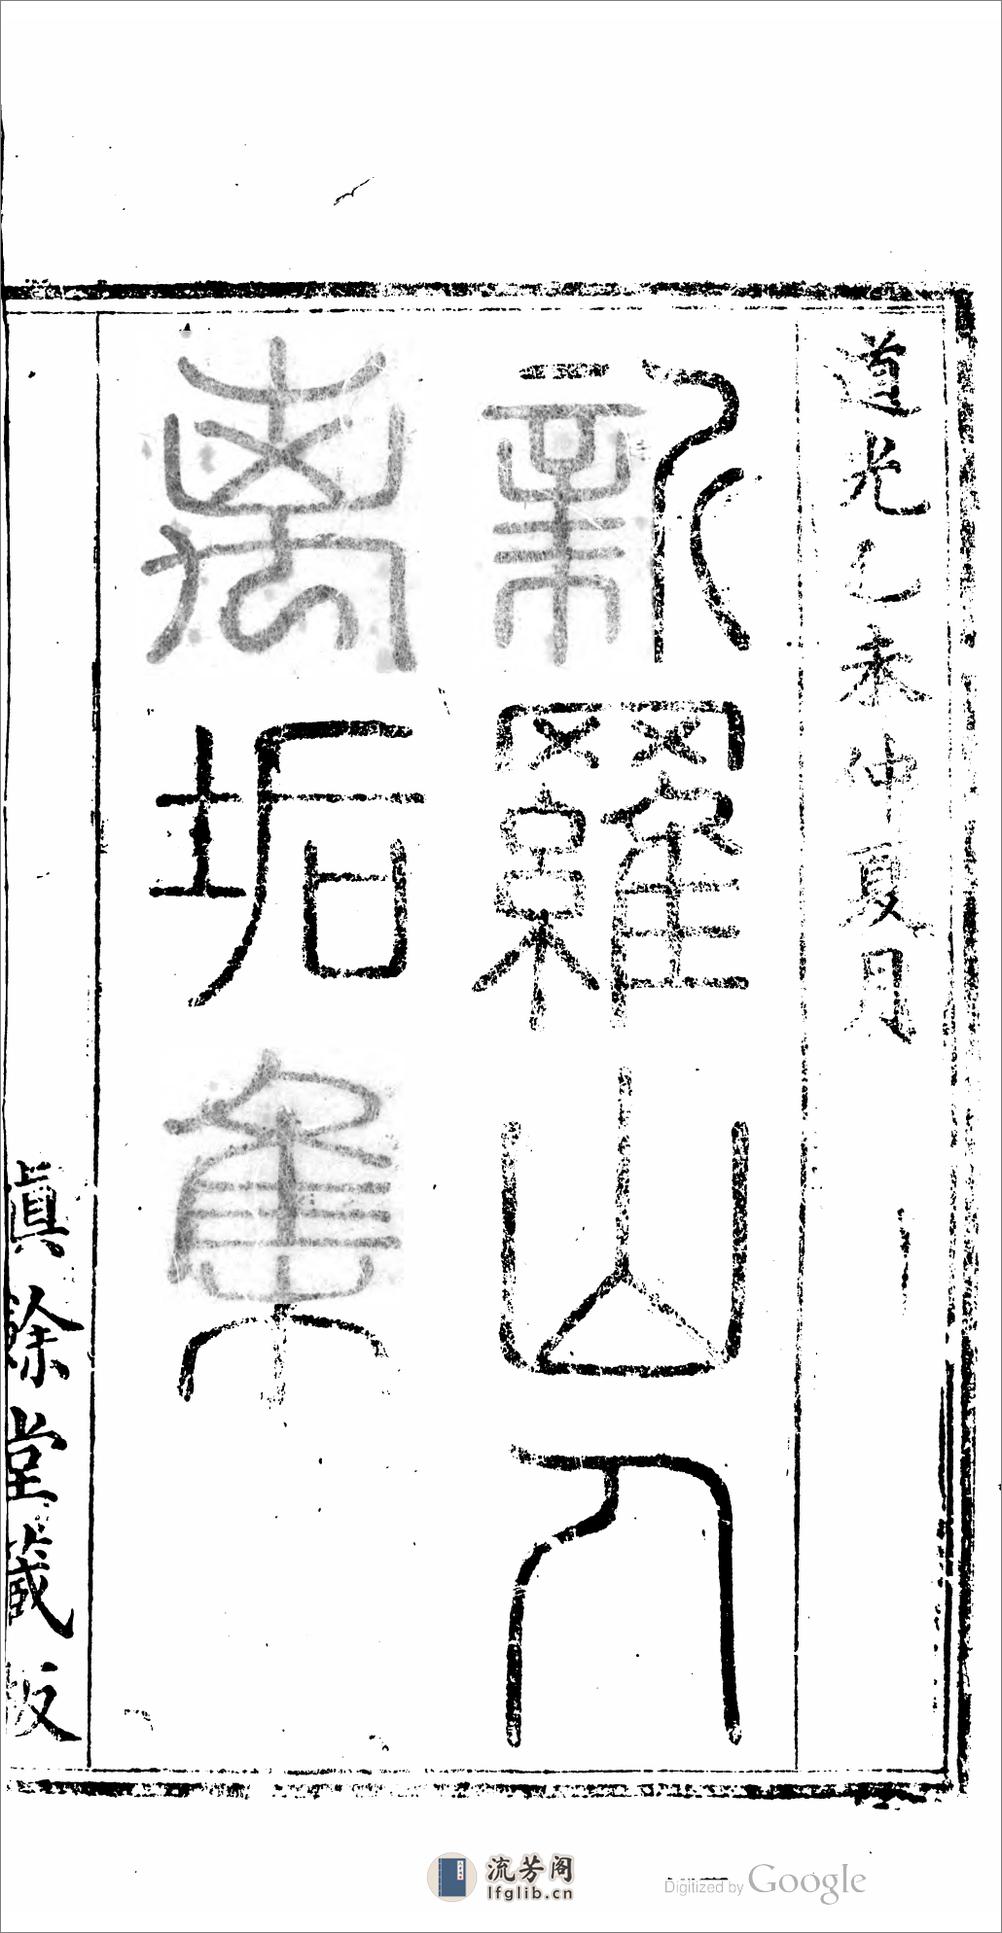 道光乙未仲夏月
新羅山人
离垢集
慎餘堂藏板
流芳阁
lfglib.cn
Digitized by Google